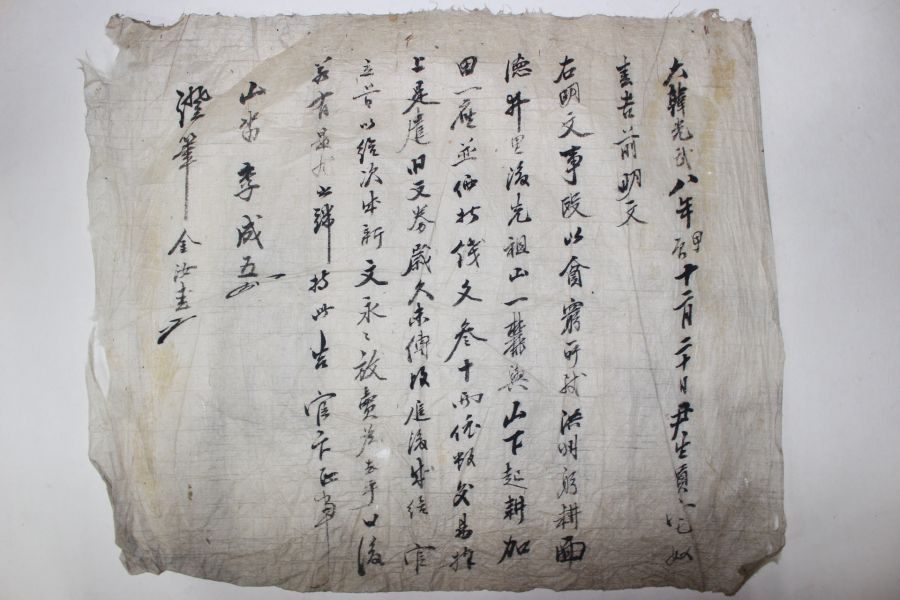 大韓光武八年甲辰十二月二十日尹生員宅奴
前明文
右明文事段以窮所致洪明躬耕面
德井里後先祖山一麓與山下起耕加
田一庫並價折錢文參十兩依數交易捧
上是遣旧文券歲久未傳故後
立旨以給次成新文永〻放賣爲去乎日後
若有持此告官卞正事
山主 李成五
證筆 金汝